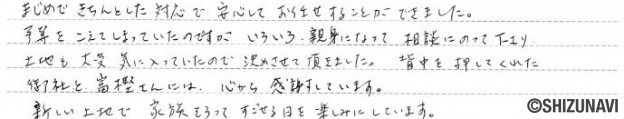 まじめできちんとした対応で安心してお任せすることができました。
予算をこえてしまっていたのですが いろいろ、親身になって 相談にのって下さり
土地も大変 気に入っていたので 決めさせて頂きました。 背中を押してくれた
御社と、富樫さんには、心から 感謝しています。
新しい土地で 家族そろって すごせる日を 楽しみにしています。
©SHIZUNAVI